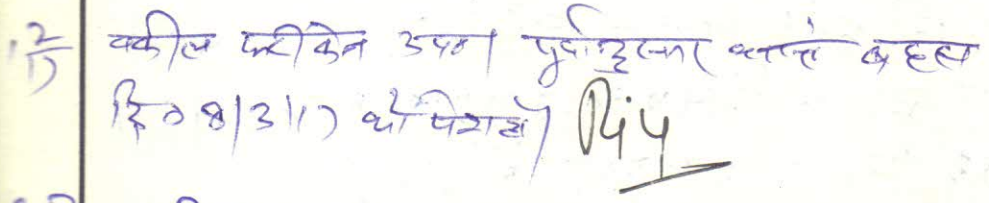 2/17 वकील फरीकेन उप0। पूर्वानुसार वास्ते बहस
दि0 8/3/17 को पेश हो।